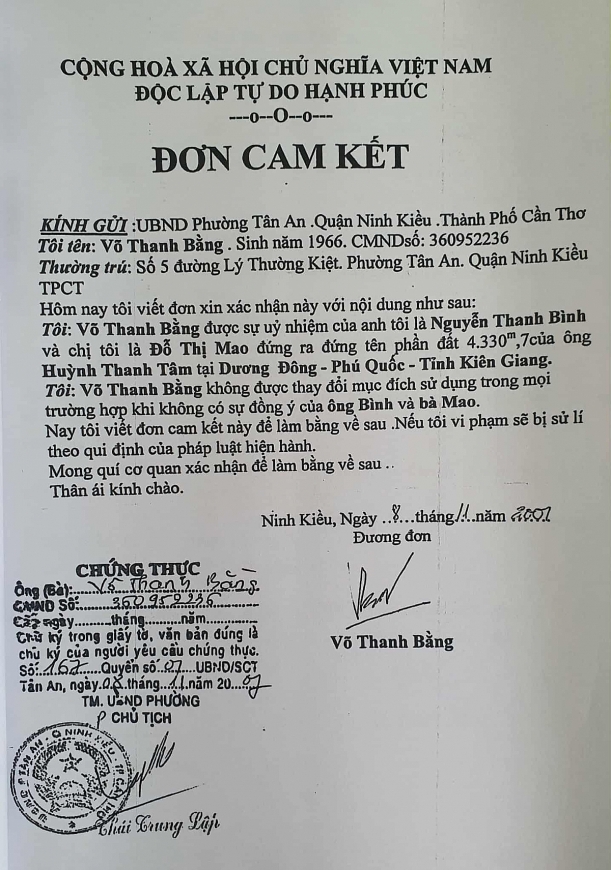 CỘNG HOÀ XÃ HỘI CHỦ NGHĨA VIỆT NAM
ĐỘC LẬP TỰ DO HẠNH PHÚC
---o--O--o---
ĐƠN CAM KẾT
KÍNH GỬI :UBND Phường Tân An .Quận Ninh Kiều .Thành Phố Cần Thơ
Tôi tên: Võ Thanh Bằng . Sinh năm 1966. CMNDsố: 360952236
Thường trú: Số 5 đường Lý Thường Kiệt. Phường Tân An. Quận Ninh Kiều
TPCT
Hôm nay tôi viết đơn xin xác nhận này với nội dung như sau:
Tôi: Võ Thanh Bằng được sự uỷ nhiệm của anh tôi là Nguyễn Thanh Bình
và chị tôi là Đỗ Thị Mao đứng ra đứng tên phần đất 4.330m,7của ông
Huỳnh Thanh Tâm tại Dương Đông - Phú Quốc - Tỉnh Kiên Giang.
Tôi: Võ Thanh Bằng không được thay đổi mục đích sử dụng trong mọi
trường hợp khi không có sự đồng ý của ông Bình và bà Mao.
Nay tôi viết đơn cam kết này để làm bằng về sau .Nếu tôi vi phạm sẽ bị sử lí
theo qui định của pháp luật hiện hành.
Mong quí cơ quan xác nhận để làm bằng về sau ..
Thân ái kính chào.
Ninh Kiều, Ngày ..8...tháng11.năm 2007
Đương đơn
Võ Thanh Bằng
CHỨNG THỰC
Ông (Bà):...Võ Thanh Bằng
CMND Số:...360952236
Cấp ngày........tháng........năm............
Chữ ký trong giấy tờ, văn bản đúng là
chữ ký của người yêu cầu chứng thực.
Số:.167...Quyển số.01..UBND/SCT
Tân An, ngày.08.tháng.11.năm 20..07
TM. UBND PHƯỜNG
P CHỦ TỊCH
U.B.N.D P.TÂN AN - Q.NINH KIỀU - TP CẦN THƠ
Thái Trung Lập